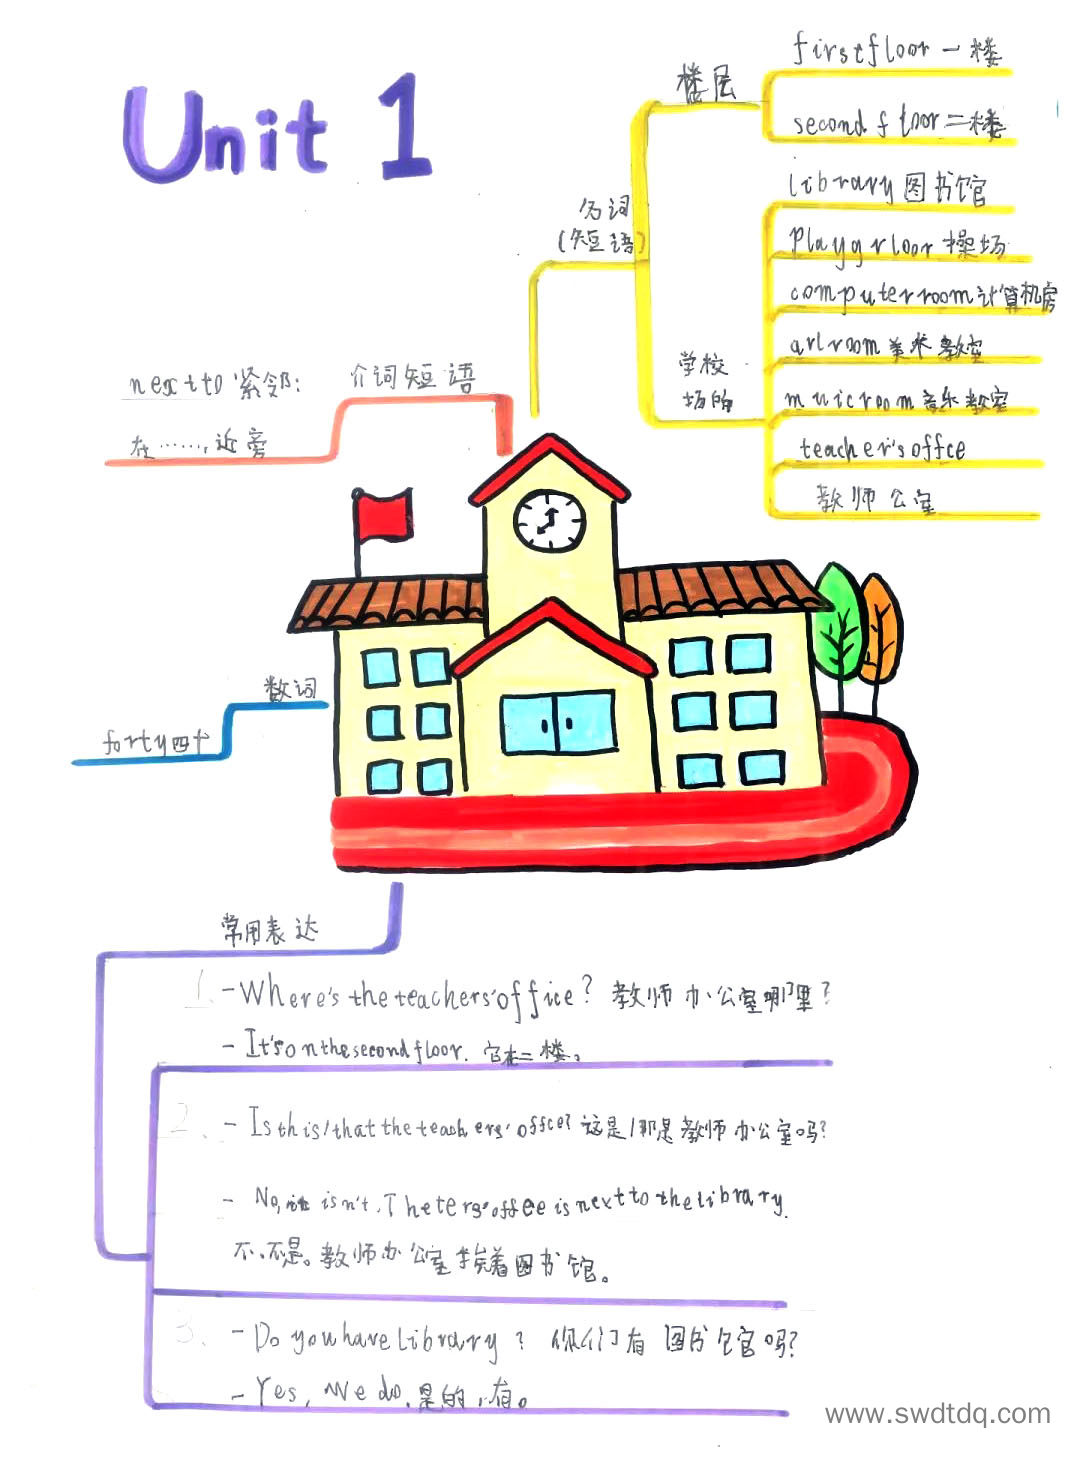 Unit 1
楼层
firstfloor 一楼
second floor 二楼
名词
(短语)
library 图书馆
Playgrloor 操场
computerroom 计算机房
学校
场的
artroom 美术教室
municroom 音乐教室
teacher's offce
教师公室
介词短语
nextto 紧邻:
在……,近旁
数词
forty 四十
常用表达
1. -Where's the teachers'office? 教师办公室哪里?
- It's on the second floor. 它在二楼。
2. - Is this/that the teachers' offce? 这是/那是教师办公室吗?
- No, it isn't. The ters' offee is next to the library.
不,不是。教师办公室挨着图书馆。
3. - Do you have library? 你们有图书馆吗?
- Yes, We do. 是的,有。
www.swdtdq.com